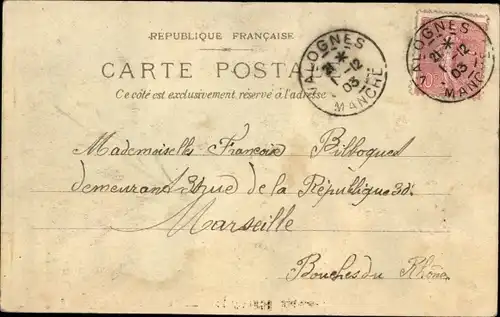 RÉPUBLIQUE FRANÇAISE
CARTE POSTA
Ce côté est exclusivement réservé à l'adresse
VALOGNES
21 * -12
03
MANCHE
VALOGNES
21 * 12
7 03
MANCHE
10
Mademoiselle Francoise
demeurant rue de la République
Marseille
Bouches du Rhône